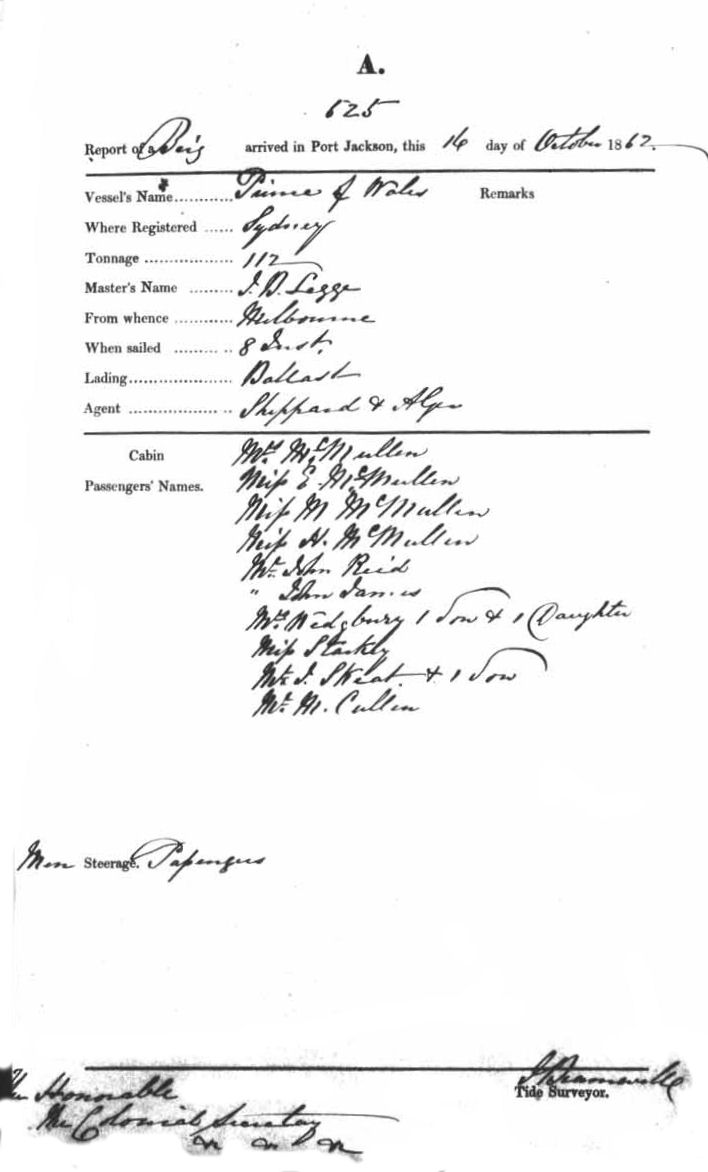 A.
525
Report of a Brig arrived in Port Jackson, this 16 day of October 1862.
Vessel's Name............ Prince of Wales Remarks
Where Registered ...... Sydney
Tonnage .................. 112
Master's Name ......... J. B. Legge
From whence ............ Melbourne
When sailed ......... .. 8 Inst.
Lading..................... Ballast
Agent .................. .. Sheppard & Alger
Cabin Mrs. McMullen
Passengers' Names. Miss E. McMullen
Miss M McMullen
Miss H. McMullen
Mr. John Reid
" John James
Mrs. Wedgbury 1 Son & 1 Daughter
Miss
Mr. J. Skeat & 1 Son
Mr. M. Cullen
Steerage. Passengers
Tide Surveyor.
The Honorable
The Colonial Secretary